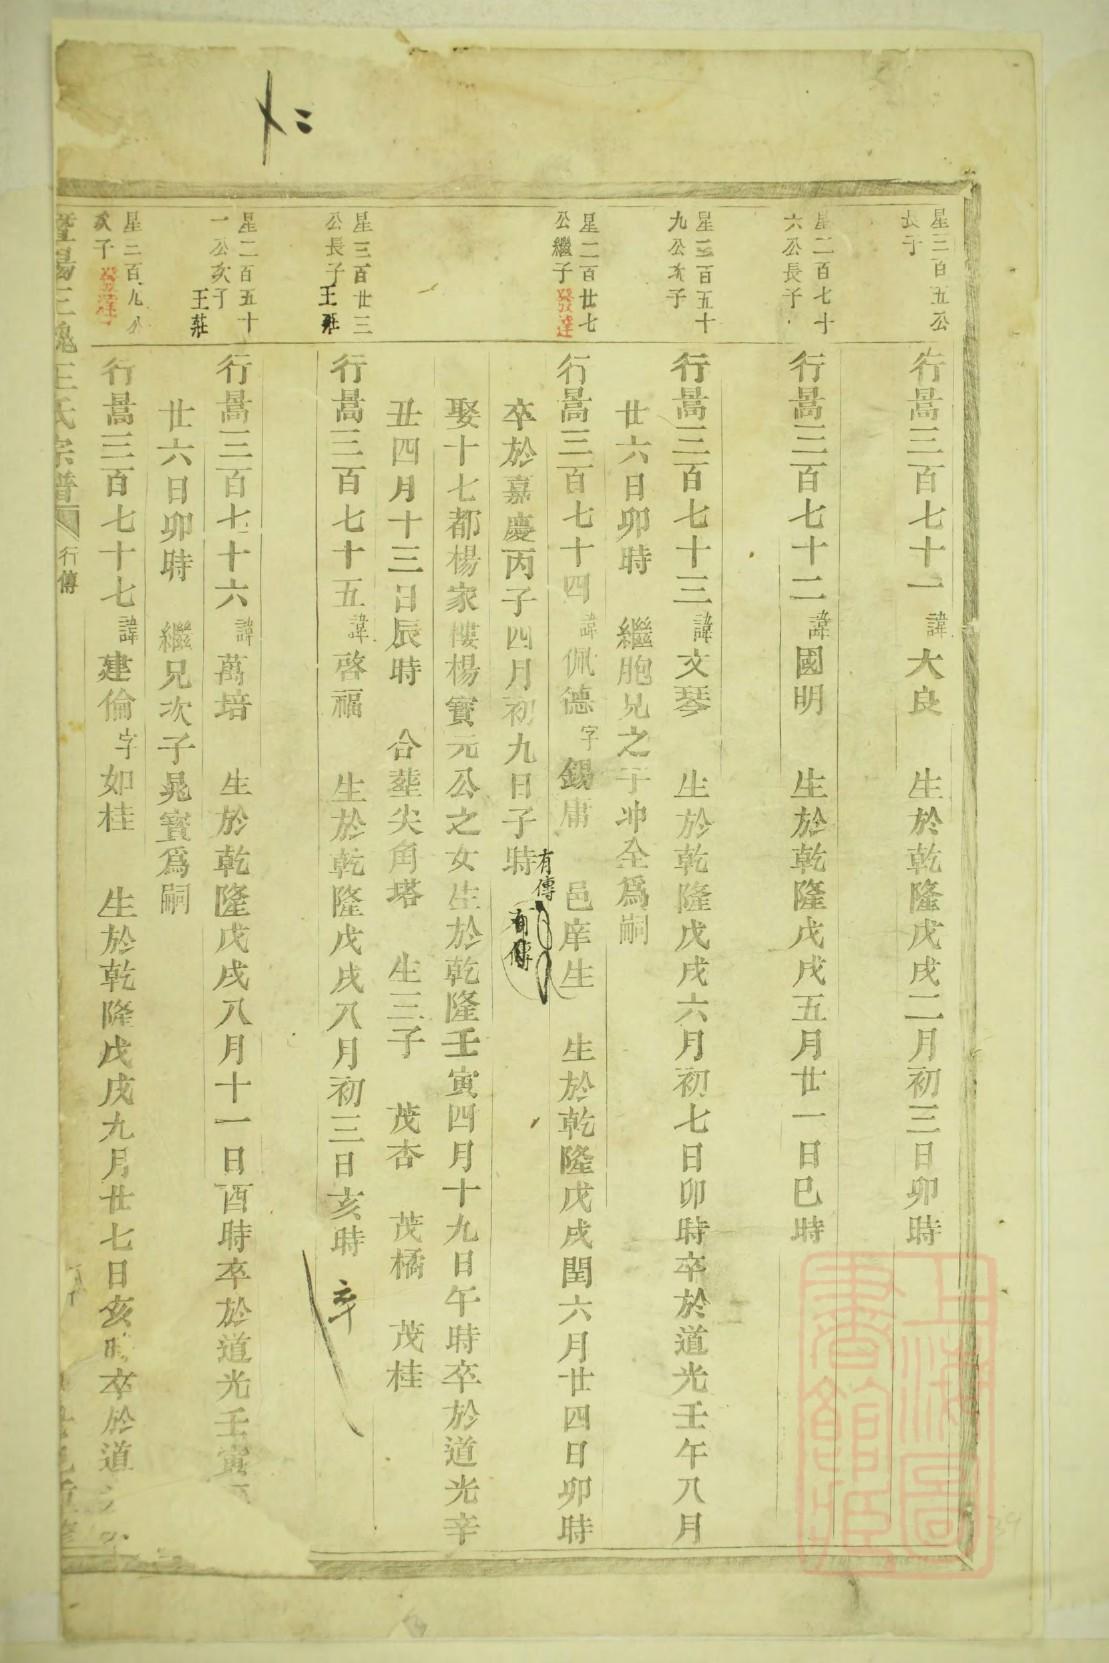 星三百五公
長子
行暠三百七十一諱大良 生於乾隆戊戌二月初三日卯時
星二百七十
六公長子
行暠三百七十二諱國明 生於乾隆戊戌五月廿一日巳時
星三百五十
九公次子
行暠三百七十三諱文琴 生於乾隆戊戌六月初七日卯時卒於道光壬午八月
廿六日卯時 繼胞兄之子冲全爲嗣
星二百廿七
公繼子發達
行暠三百七十四諱佩德字錫庸 邑庠生 生於乾隆戊戌閏六月廿四日卯時
卒於嘉慶丙子四月初九日子時
有傳
有傳
娶十七都楊家樓楊寳元公之女生於乾隆壬寅四月十九日午時卒於道光辛
丑四月十三日辰時 合塟尖角塔 生三子 茂杏 茂橘 茂桂
星三百廿三
公長子王莊
行暠三百七十五諱啓福 生於乾隆戊戌八月初三日亥時 卒
星二百五十
一公次子
王莊
行暠三百七十六諱萬培 生於乾隆戊戌八月十一日酉時卒於道光壬寅
廿六日卯時 繼兄次子晁寳爲嗣
星二百九
次子發達
行暠三百七十七諱建倫字如桂 生於乾隆戊戌九月廿七日亥時卒於道
暨陽三槐王氏宗譜 行傳
上海圖
書館藏